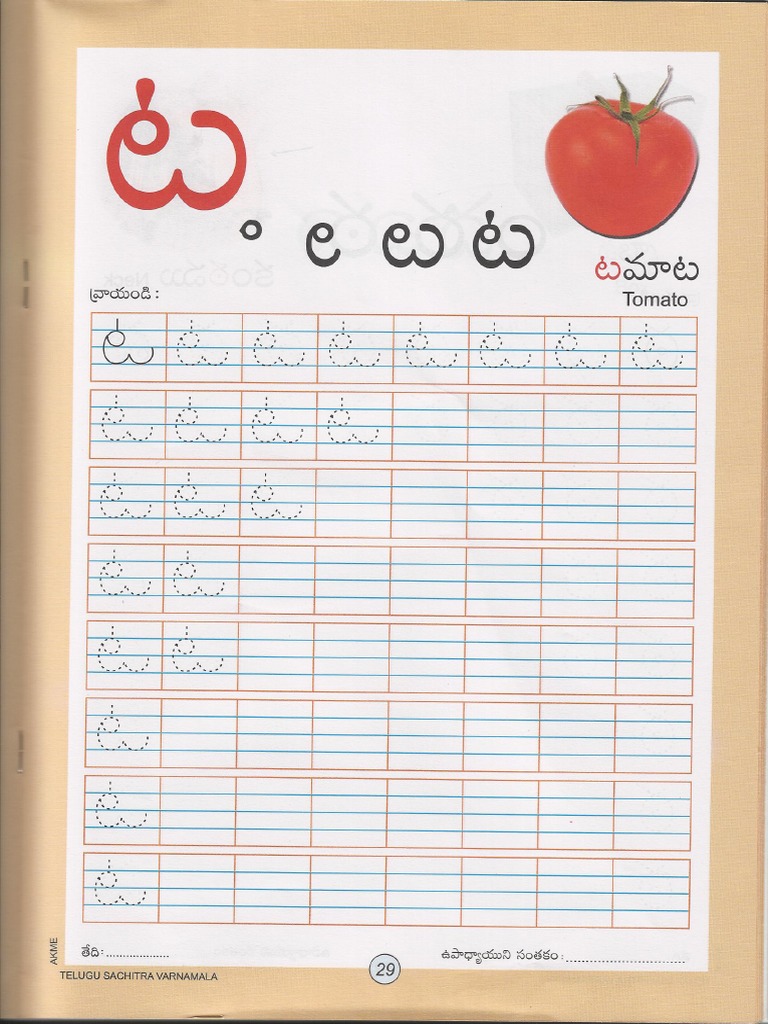 ట
ట
టమాట
Tomato
వ్రాయండి :
ట ట ట ట ట ట ట ట
ట ట ట ట
ట ట ట
ట ట
ట ట
ట
ట
ట
తేది:..................
ఉపాధ్యాయుని సంతకం:..................................
AKME
TELUGU SACHITRA VARNAMALA
29